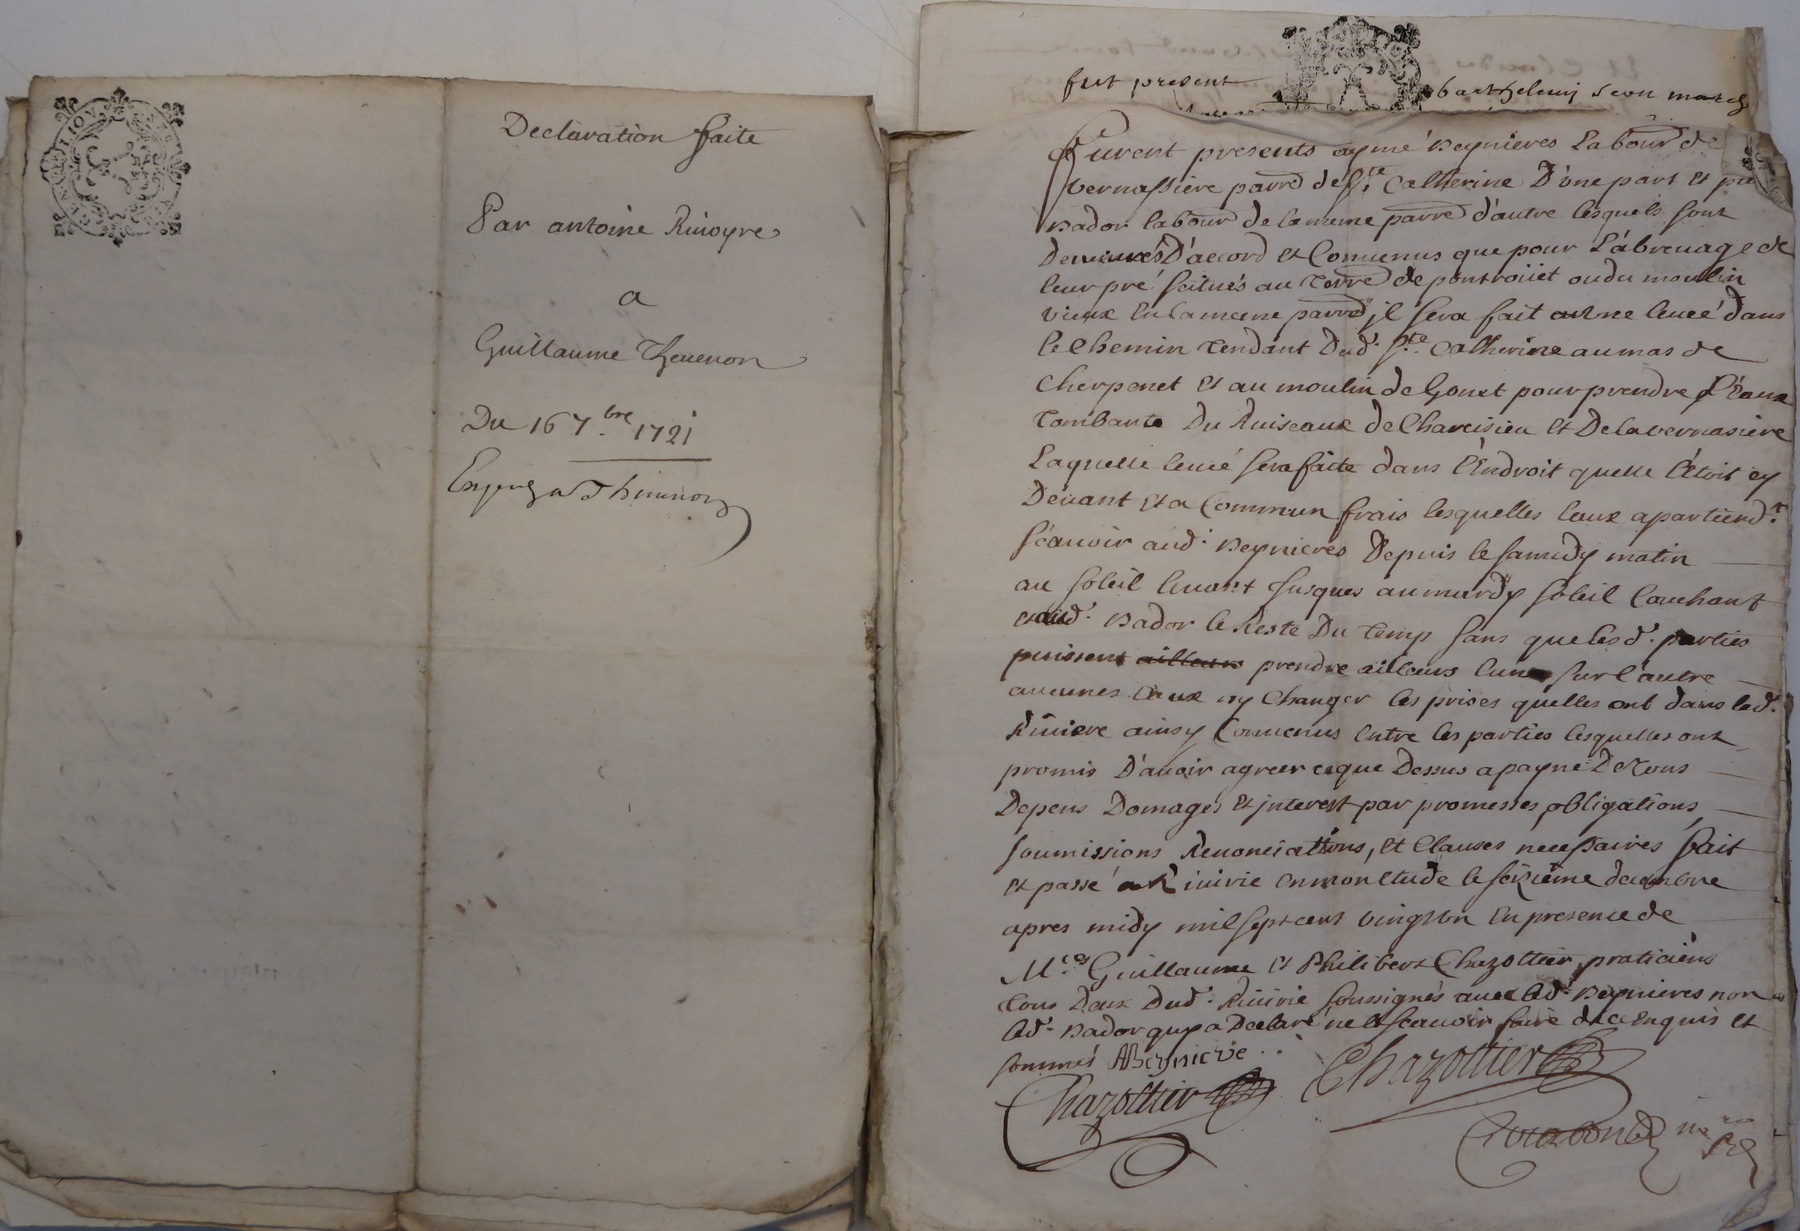 Declaration faite
Par antoine Rivoyre
a
Guillaume Thevenon
Du 16 7.bre 1721
fut present barthelemy
Furent presents aymé Beynieres Labour de
vernassiere parre de Ste Catherine D'une part et
Bador labour de la meme parre d'autre lesquels sont
Demeurés D'accord et Convenus que pour L'abreuage de
leur pré scitués au Terre de pontroüet ou du moulin
vieux En la meme parre, il sera fait une leuée dans
le Chemin Tendant Dud. Ste Catherine au mas de
Cherpenet et au moulin de Gonet pour prendre L'Eaux
Tombante Du Ruiseaux de Chareisieu et De la vernasiere
Laquelle leueé sera faite dans l'Endroit quelle Etoit cy
Deuant et a Commun frais lesquelles Eaux apartiendt
scauoir aud. Beynieres Depuis le samedy matin
au soleil leuant Jusques au mardy soleil Couchant
et aud. Bador le Reste Du Temp sans que lesd. parties
puissent ailleurs prendre ailleurs lune sur l'autre
aucunes Eaux ny Changer les prises quelles ont dans lad.
Riuiere ainsy Conuenus Entre les parties lesquelles ont
promis D'auoir agreer ce que Dessus a payne De Tous
Depens Domages et interest par promesses obligations
soumissions Renonciations, et Clauses necessaires fait
et passé a Riuirie En mon Etude le seizieme decembre
apres midy mil sept cent vingt un En presence de
Mres Guillaume et Philibert Chazottier, praticiens
Tous Deux Dud. Riuirie soussignés auec led. Beynieres non
led. Bador qui a Declaré ne scauoir faire de ce Enquis et
sommés ABeyniere
Chazottier Chazottier